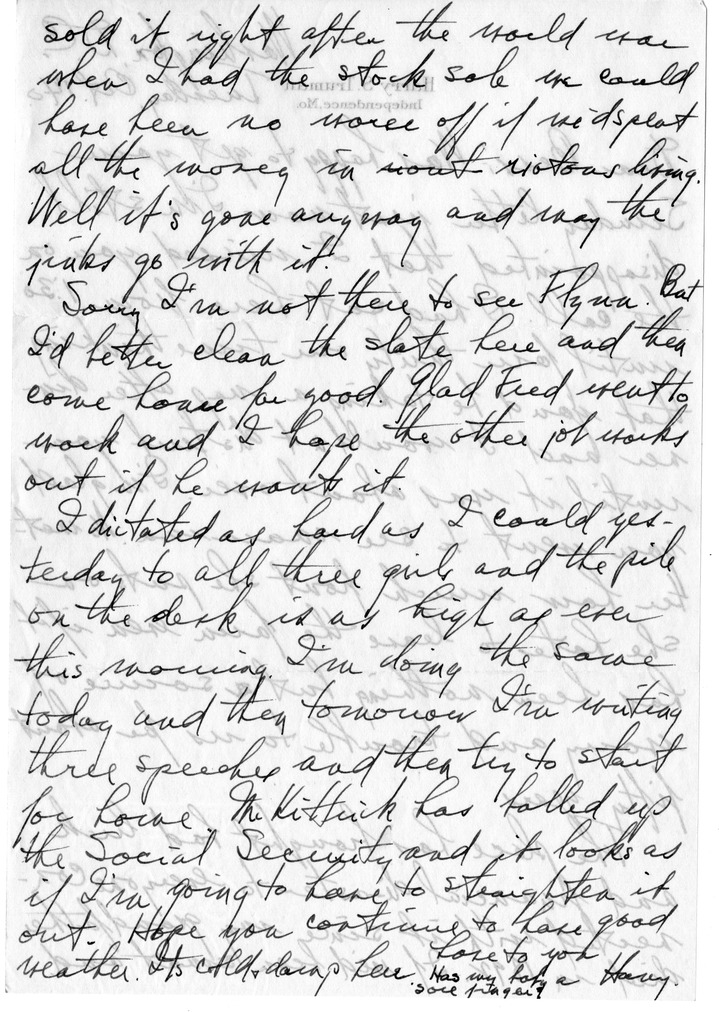 sold it right after the world war
when I had the stock sale we could
have been no worse off if we'd spent
all the money in riout riotous living.
Well it's gone anyway and may the
jinks go with it.
Sorry I'm not there to see Flynn. But
I'd better clean the slate here and then
come home for good. Glad Fred went to
work and I hope the other job works
out if he wants it.
I dictated as hard as I could yes-
terday to all three girls and the pile
on the desk is as high as ever
this morning. I'm doing the same
today and then tomorrow I'm writing
three speeches and then try to start
for home. McKittrick has balled up
the Social Security and it looks as
if I'm going to have to straighten it
out. Hope you continue to have good
weather. Its cold & damp here.
Love to you
Harry.
Has my baby a
sore finger?
Harry S. Truman
Independence, Mo.